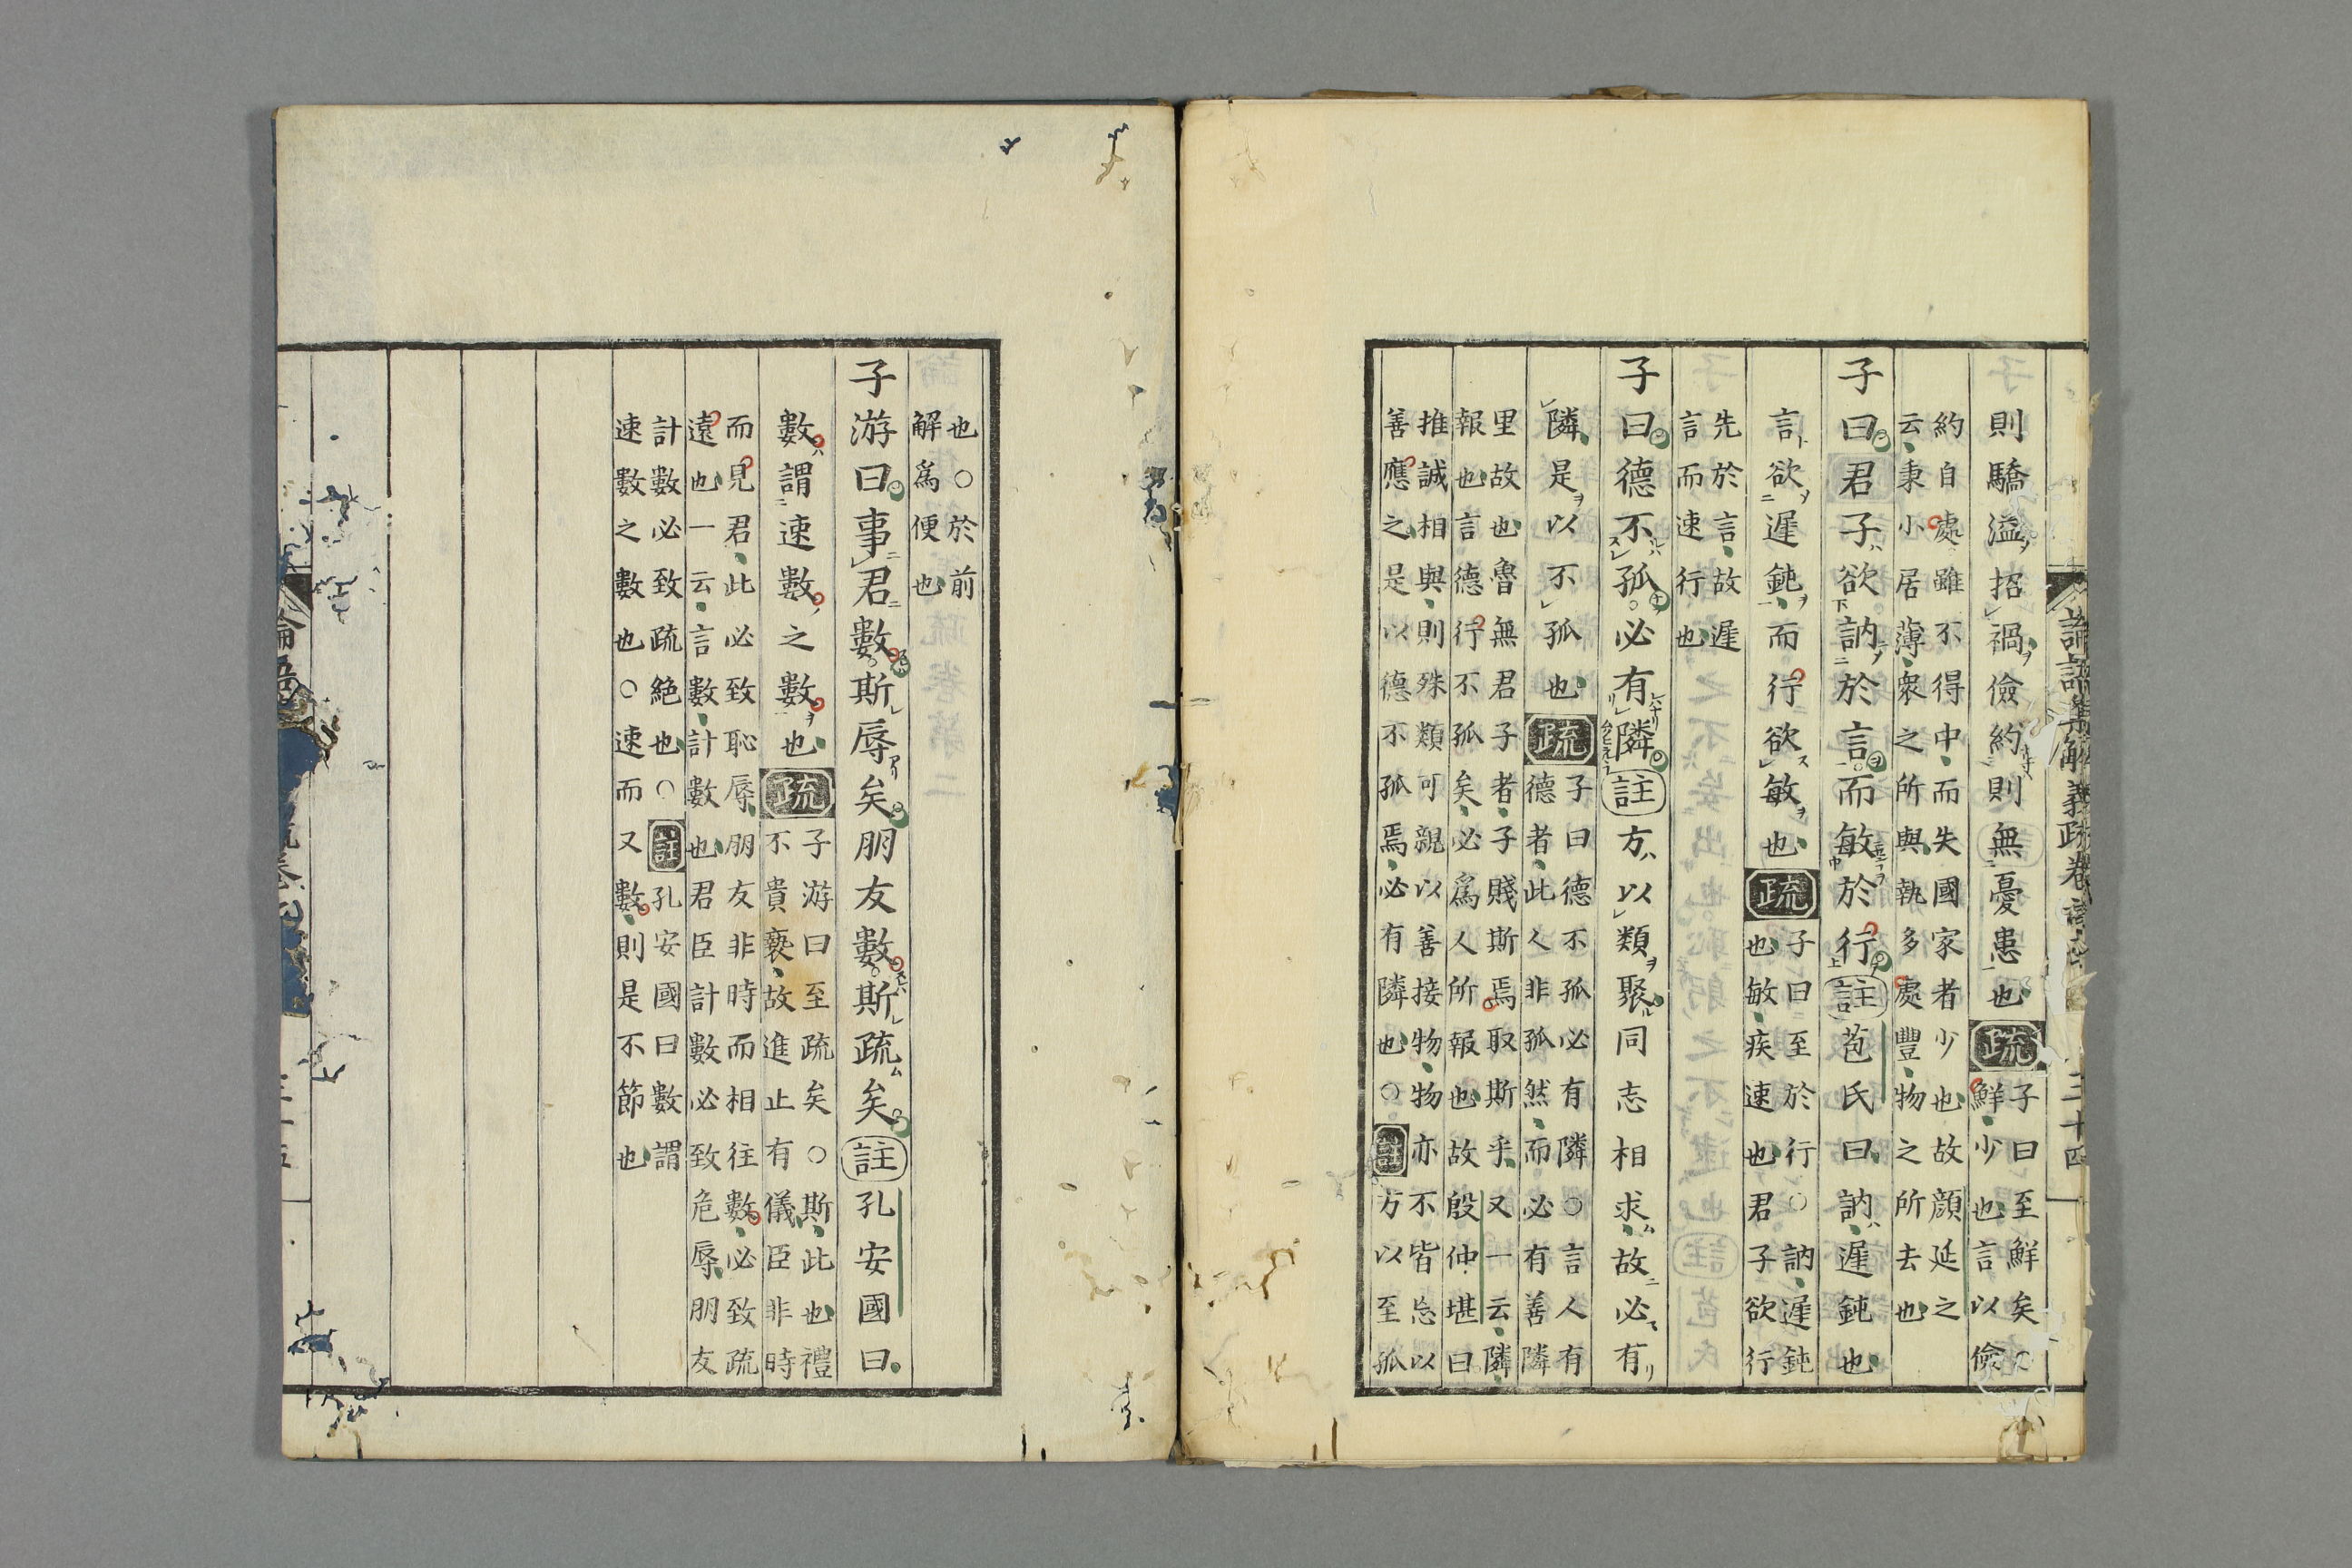 論語集解義疏卷 三十四
則驕溢招禍儉約則無憂患也疏子曰至鮮矣○
鮮少也言以儉
約自處雖不得中而失國家者少也故顔延之
云秉小居薄衆之所與執多處豐物之所去也
子曰君子欲訥於言而敏於行註苞氏曰訥遲鈍也
言欲遲鈍而行欲敏也疏子曰至於行○訥遲鈍
也敏疾速也君子欲行
先於言故遲
言而速行也
子曰德不孤必有隣註方以類聚同志相求故必有
隣是以不孤也疏子曰德不孤必有隣○言人有
德者此人非孤然而必有善隣
里故也魯無君子者子賤斯焉取斯乎又一云隣
報也言德行不孤矣必爲人所報也故殷仲堪曰
推誠相與則殊類可親以善接物物亦不皆忘以
善應之是以德不孤焉必有隣也○註方以至孤
也○於前
解爲便也
子游曰事君數斯辱矣朋友數斯疏矣註孔安國曰
數謂速數之數也疏子游曰至疏矣○斯此也禮
不貴褻故進止有儀臣非時
而見君此必致恥辱朋友非時而相往數必致疏
遠也一云言數計數也君臣計數必致危辱朋友
計數必致疏絶也○註孔安國曰數謂
速數之數也○速而又數則是不節也